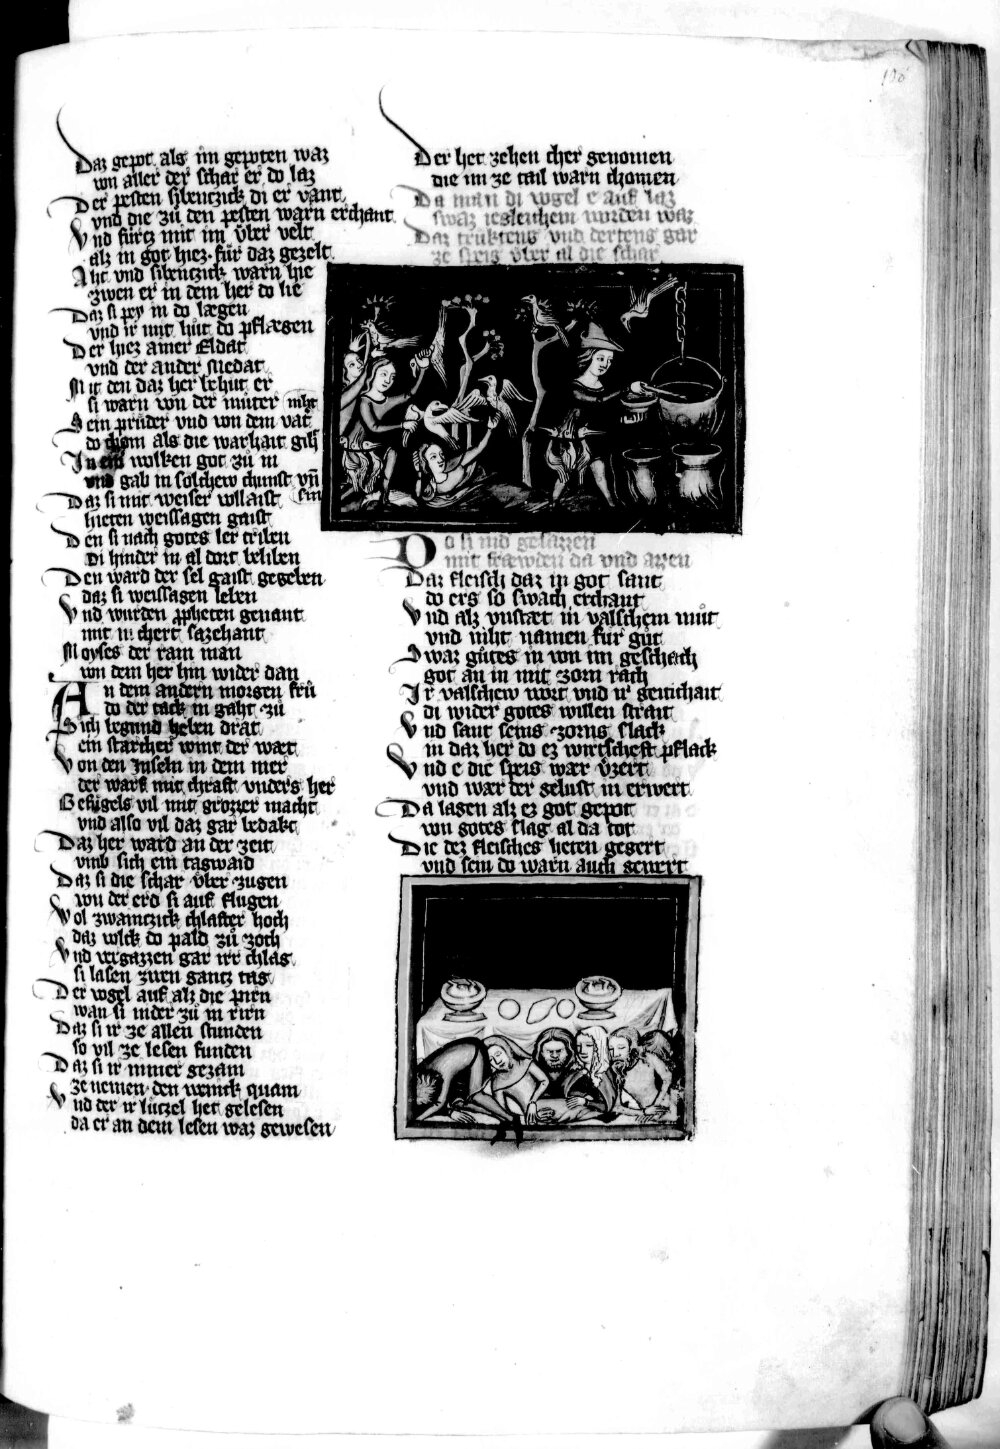 Daz gepot als im gepoten waz
von aller der schar er do laz
Der pesten sibentzick di er vant
vnd die zů den pesten warn erchant
Vnd fůrtz mit im vber velt
alz in got hiez fůr daz gezelt
Aht vnd sibentzick warn hie
zwen er in dem her do lie
Daz si pey in do lægen
vnd ir mit hůt do pflægen
Der hiez ainer Eldat
vnd der ander Medat
Mit den daz her behůt er
si warn von der můter niht
Sein průder vnd von dem vat
do chom als die warhait giht
In ein wolken got zů in
vnd gab in solchew chunst vn̄ sin
Daz si mit weiser vollaist
hieten weissagen gaist
Den si nach gotes ler triben
Di hinder in al dort beliben
Den ward der sel gaist gegeben
daz si weissagen leben
Vnd wurden propheten genant
mit chert sazehant
Moyses der rain man
von dem her hin wider dan
An dem andern morgen frů
do der tack in gaht zů
Sich begund heben drat
ein starcher wint der wæt
Von den Inseln in dem mer
der warf mit chraft vnders her
Gefůgels vil mit grozzer macht
vnd also vil daz gar bedakt
Daz her ward an der zeit
vmb sich ein tagwaid
Daz si die schar vber zugen
von der erd si auf flugen
Wol zwaintzick chlafter hoch
daz volck do pald zů zoch
Vnd vergazzen gar irr chlag
si lasen zwen gantz tag
Der vogel auf alz die pirn
wan si inder zů in
Daz si ir ze allen stunden
so vil ze lesen funden
Daz si ir nimer gezam
ze nemen den wenick quam
Vnd der ir lůtzel het gelesen
da er an dem lesen waz gewesen
Der het zehen cher genomen
die im ze tail warn chomen
Da man di vogel e auf laz
swaz iegleichem worden waz
Daz trůktens vnd dertens gar
ze speis vber al die schar
Do si nid gesazzen
mit fræwden da vnd azzen
Daz fleisch daz in got sant
do ers so swach erchant
Vnd alz vnstæt in valschem můt
vnd niht namen fůr gůt
Swaz gůtes in von im geschach
got an in mit zorn rach
Ir valschew wort vnd ir geitichait
di wider gotes willen strait
Vnd sant seins zorns slack
in daz her do ez wirtscheft pflack
Vnd e die speis wær vˢzert
vnd wær der gelust in erwert
Da lagen alz ez got gepot
von gotes slag al da tot
Die dez fleisches heten gegert
vnd sein do warn auch gewert